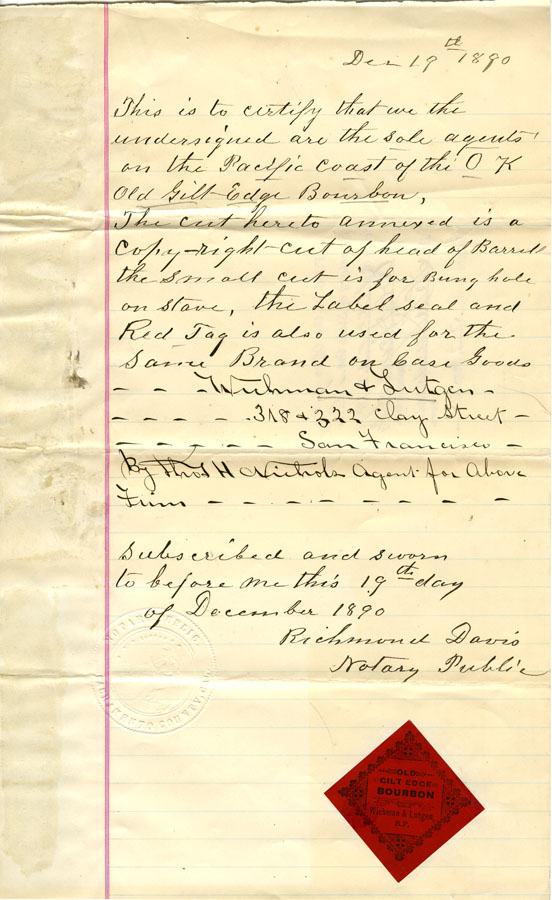 Dec 19th 1890
This is to certify that we the
undersigned are the sole agents
on the Pacific coast of the O K
Old Gilt Edge Bourbon,
The cut hereto annexed is a
copy-right cut of head of Barrel
the small cut is for Bung hole
on stave, the Label seal and
Red Tag is also used for the
same Brand on Case Goods
- - - Wichman & Lutgen -
- - - - - 318 & 322 Clay Street -
- - - - - - San Francisco -
By Thos H Nichols Agent for Above
Firm - - - - - - - -
Subscribed and sworn
to before me this 19th day
of December 1890
Richmond Davis
Notary Public
NOTARY PUBLIC
SACRAMENTO COUNTY, CAL
OLD
GILT EDGE
BOURBON
Wichman & Lutgen
S.F.